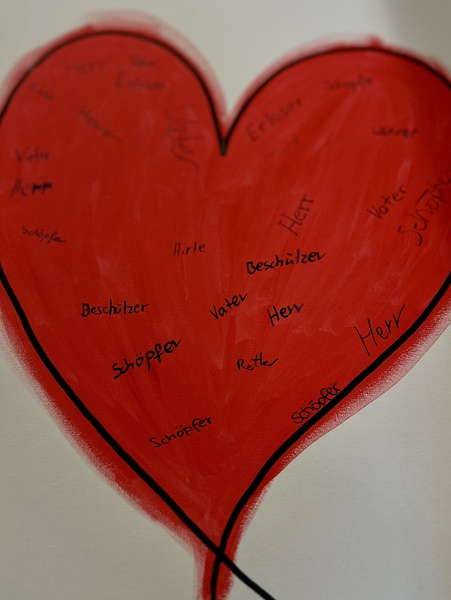 Herr
Vater
Erlöser
Schöpfer
Erlöser
Lehrer
Vater
Vater
Herr
Vater
Schöpfer
Herr
Schöpfer
Hirte
Beschützer
Beschützer
Vater
Herr
Herr
Schöpfer
Retter
Schöpfer
Schöpfer